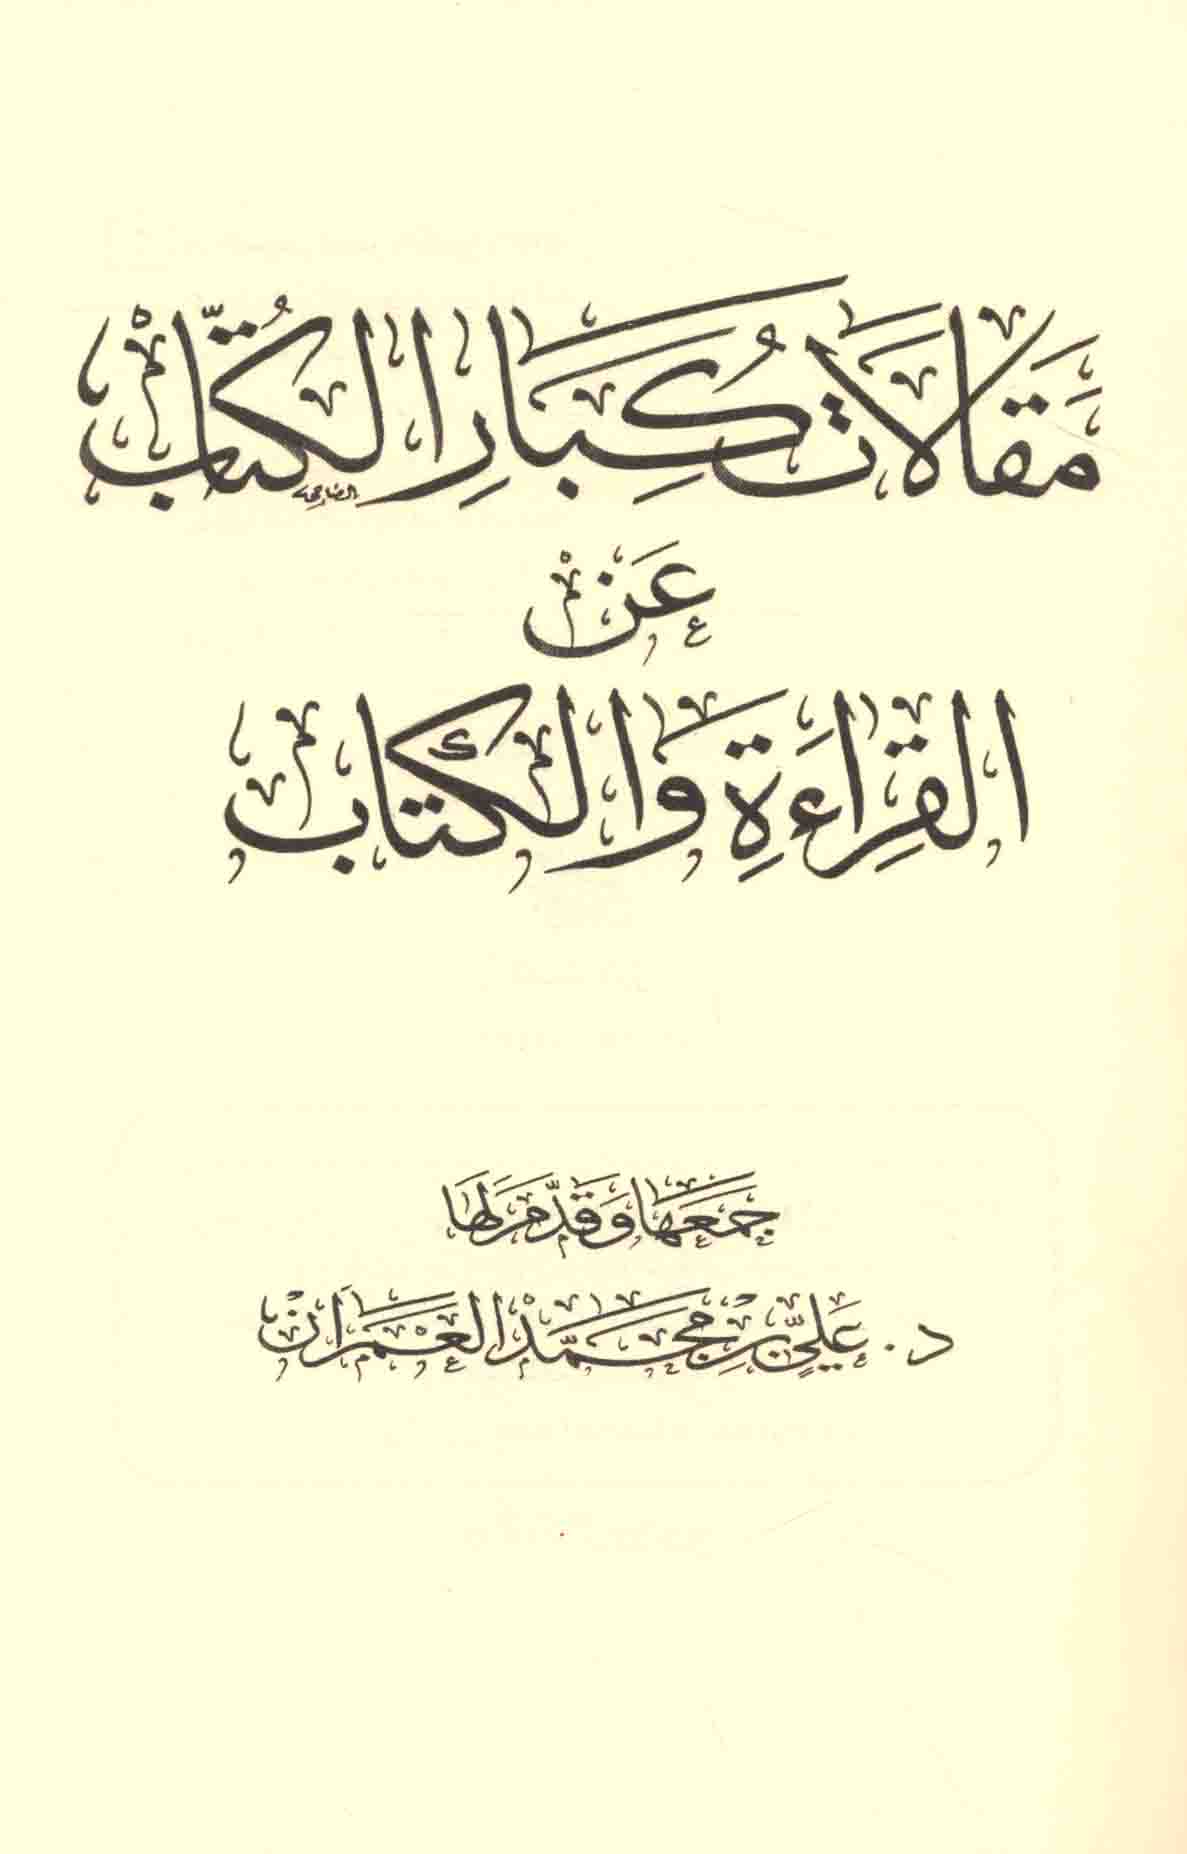 مَقَالَاتُ كِبَارِ الكُتَّاب
عَن
القِرَاءَةِ وَالكِتَاب
جَمَعَهَا وَقَدَّمَ لَهَا
د. عَلِيّ بن مُحَمَّد العِمْرَان